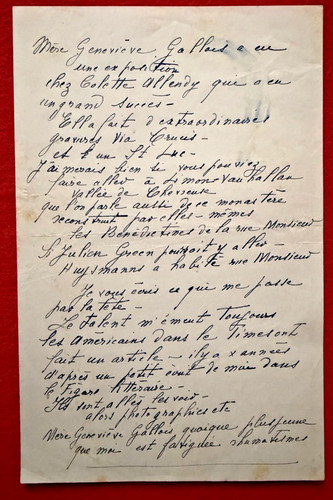 Mère Geneviève Gallois a eu
une exposition
chez Colette Allendy qui a eu
un grand succès -
Ella fait d'extraordinaires
gravures Via Crucis -
et d'un St Luc -
J'aimerais bien que vous pouviez
faire aller à Limon Vauhallan
Vallée de Chevreuse
que l'on parle aussi de ce monastère
reconstruit par elles-mêmes
les Bénédictines de la rue Monsieur
Si Julien Green pouvait y aller -
Huysmanns a habité rue Monsieur
Je vous écris ce que me passe
par la tête -
Le talent m'émeut toujours
les Américains dans le Times ont
fait un article - il y a x années
d'après un petit conte de moi dans
le Figaro littéraire -
Ils sont allés les voir -
alors photographies etc
Mère Geneviève Gallois quoique plus jeune
que moi est fatiguée rhumatismes